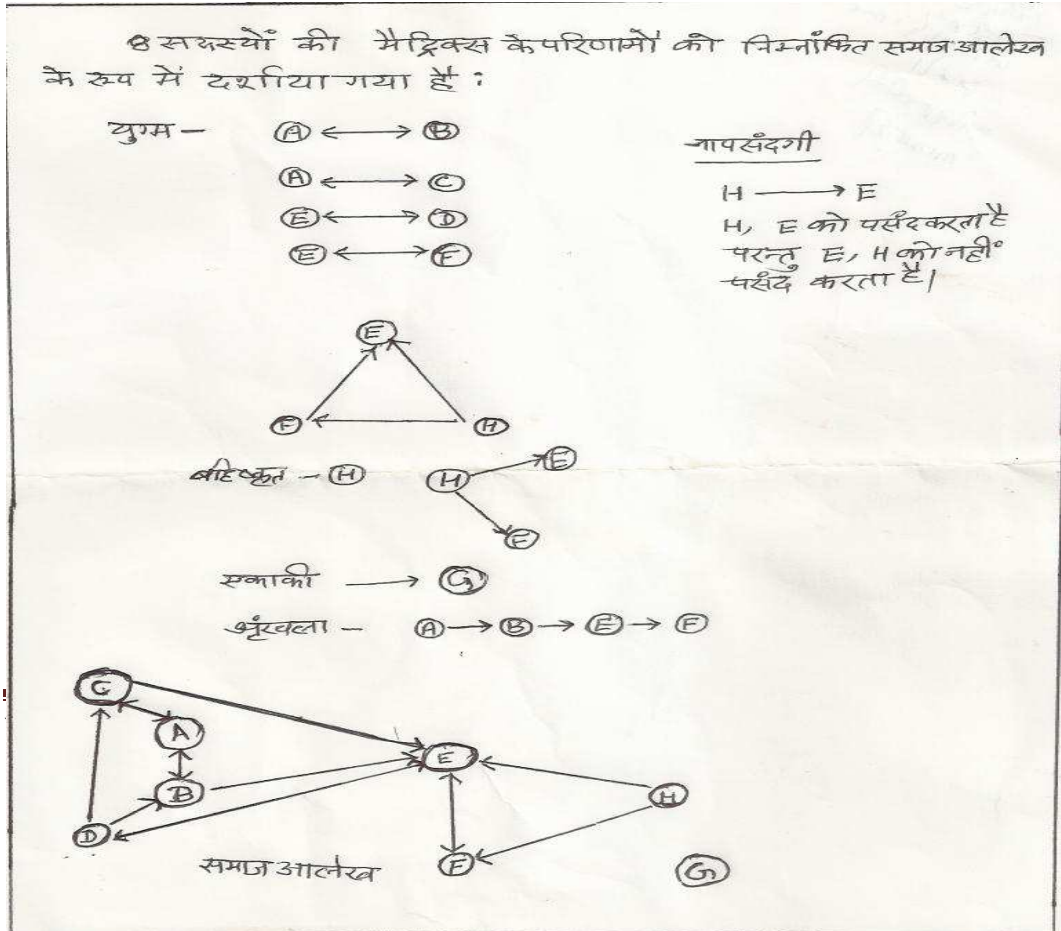 8 सदस्यों की मैट्रिक्स के परिणामों को निम्नांकित समाज आलेख
के रूप में दर्शाया गया है :
युग्म - A B
A C
E D
E F
नापसंदगी
H E
H, E को पसंद करता है
परन्तु E, H को नहीं
पसंद करता है।
E
F H
बहिष्कृत - H H E
F
एकाकी G
श्रृंखला - A B E F
C
A
E
B
H
D
F
G
समाज आलेख